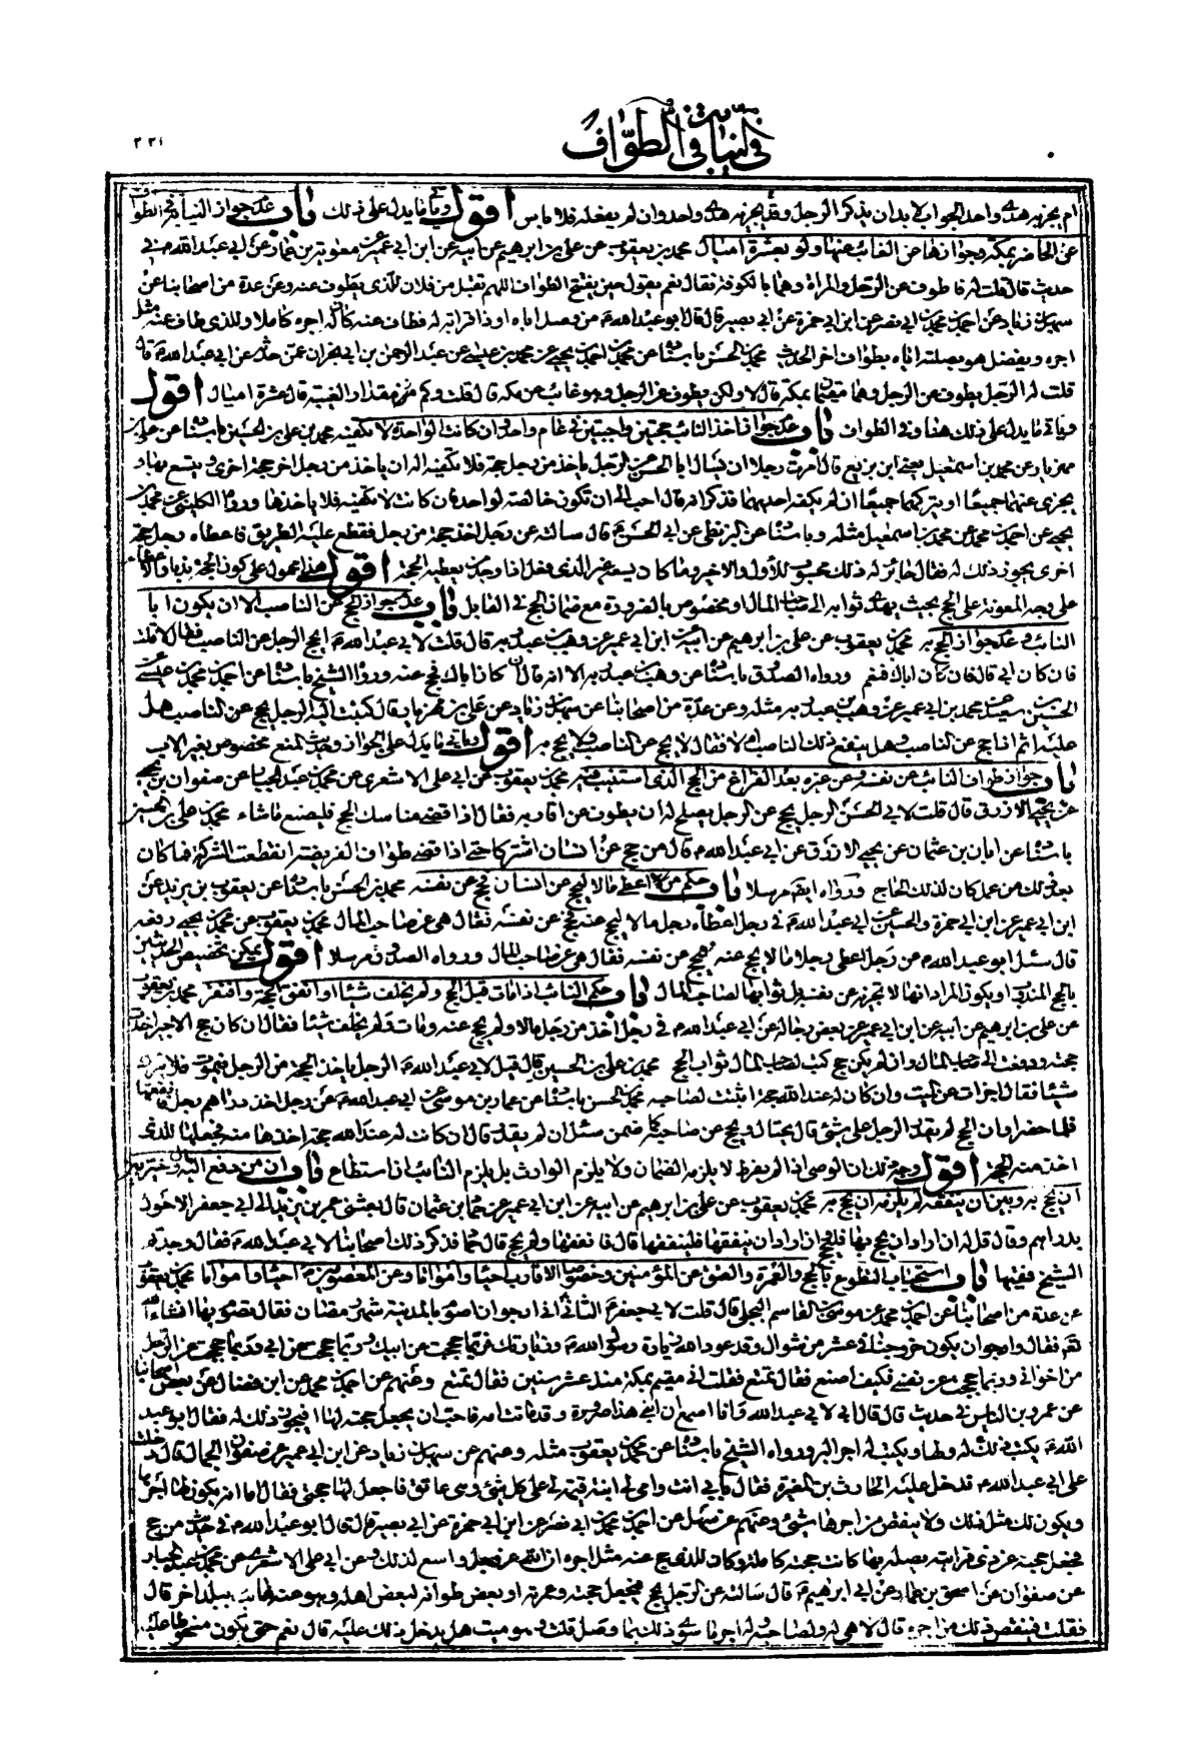 في النيابة في الطواف
٢٢١
ام يجزيه هدى واحد الجواب لابد ان يذكر الرجل وقد يجزيه هدى واحد وان لم يفعله فلا بأس اقول وياتى ما يدل على ذلك باب عدم جواز النيابة في الطواف
عن الحاضر بمكة وجوازها عن الغائب عنها ولو بعشرة اميال محمد بن يعقوب عن على بن ابرهيم عن ابيه عن ابن ابي عمير عن معوية بن عمار عن ابي عبد الله ع في
حديث قال قلت له فاطوف عن الرجل والمراة وهما بالكوفة فقال نعم يقول حين يفتتح الطواف اللهم تقبل من فلان للذى يطوف عنه وعن عدة من اصحابنا عن
سهل بن زياد عن احمد بن محمد بن ابي نصر عن ابن ابي حمزة عن ابي بصير قال قال ابو عبد الله ع من وصل اباه او ذا قرابة له فطاف عنه كان له اجره كاملا وللذى طاف عنه مثل
اجره ويفضل هو بصلته اياه بطواف اخر الحديث محمد بن الحسن باسناده عن محمد بن احمد بن يحيى عن محمد بن عيسى عن عبد الرحمن بن ابي نجران عمن حدثه عن ابي عبد الله ع قال
قلت له الرجل يطوف عن الرجل وهما مقيمان بمكة قال لا ولكن يطوف عن الرجل وهو غائب عن مكة قال قلت وكم مقدار الغيبة قال عشرة اميال اقول
وياتى ما يدل على ذلك هنا وفي الطواف باب عدم جواز اخذ النائب حجتين واجبتين في عام واحد وان كانت الواحدة لا تكفيه محمد بن على بن الحسين باسناده عن على بن
مهزيار عن محمد بن اسمعيل يعنى ابن بزيع قال امرت رجلا ان يسال ابا الحسن ع عن الرجل ياخذ من رجل حجة فلا تكفيه اله ان ياخذ من رجل اخر حجة اخرى ويتسع بها و
يجزى عنهما جميعا او يتركهما جميعا ان لم يكفه احديهما فذكر انه قال احب الى ان تكون خالصة لواحد فان كانت لا تكفيه فلا ياخذها ورواه الكليني عن محمد بن
يحيى عن احمد بن محمد عن محمد بن اسمعيل مثله وباسناده عن البزنطى عن ابي الحسن ع قال سالته عن رجل اخذ حجة من رجل فقطع عليه الطريق فاعطاه رجل حجة
اخرى يجوز له ذلك فقال جائز له ذلك محسوب للاول والاخير وما كان يسعه غير الذى فعل اذا وجد من يعطيه الحجة اقول هذا محمول على كون الحجة
على وجه المعونة على الحج بحيث يهدى ثوابه الى صاحب المال او مخصوص بالضرورة مع ضمان الحج في القابل باب عدم جواز الحج عن الناصب الا ان يكون ابا
النائب وعدم جواز الحج به محمد بن يعقوب عن على بن ابرهيم عن ابيه عن ابن ابي عمير عن وهب بن عبد ربه قال قلت لابي عبد الله ع ايحج الرجل عن الناصب فقال لا قلت
فان كان ابي قال فان كان اباك فنعم ورواه الصدوق باسناده عن وهب بن عبد ربه الا انه قال ان كان اباك فحج عنه ورواه الشيخ باسناده عن احمد بن محمد بن عيسى عن
الحسين بن سعيد عن محمد بن ابي عمير عن وهب بن عبد ربه مثله وعن عدة من اصحابنا عن سهل بن زياد عن على بن مهزيار قال كتبت اليه الرجل يحج عن الناصب هل
عليه اثم اذا حج عن الناصب وهل ينفع ذلك الناصب ام لا فقال لا يحج عن الناصب ولا يحج به اقول وياتى ما يدل على الجواز وحديث المنع مخصوص بغير الاب
باب جواز طواف النائب عن نفسه وعن غيره بعد الفراغ من الحج الذى استنيب فيه محمد بن يعقوب عن ابي على الاشعرى عن محمد بن عبد الجبار عن صفوان بن يحيى
عن يحيى الازرق قال قلت لابي الحسن ع الرجل يحج عن الرجل يصلح له ان يطوف عن اقاربه فقال اذا قضى مناسك الحج فليصنع ما شاء محمد بن على بن الحسين
باسناده عن ابان بن عثمان عن يحيى الازرق عن ابي عبد الله ع قال من حج عن انسان اشتركا حتى اذا قضى طواف الفريضة انقطعت الشركة فما كان
بعد ذلك من عمل كان لذلك الحاج ورواه ايضا مرسلا باب حكم من اعطى مالا ليحج عن انسان فحج عن نفسه محمد بن الحسن باسناده عن يعقوب بن يزيد عن
ابن ابي عمير عن ابن ابي حمزة والحسين عن ابي عبد الله ع في رجل اعطاه رجل مالا ليحج عنه فحج عن نفسه فقال هى عن صاحب المال محمد بن يعقوب عن محمد بن يحيى رفعه
قال سئل ابو عبد الله ع عن رجل اعطى رجلا مالا يحج عنه فيحج عن نفسه فقال هى عن صاحب المال ورواه الصدوق مرسلا اقول يمكن تخصيص الحديثين
بالحج المندوب او يكون المراد انها لا تجزيه عن نفسه بل ثوابها لصاحب المال باب حكم النائب اذا مات قبل الحج ولم يخلف شيئا او انفق الحجة وافتقر محمد بن يعقوب
عن على بن ابرهيم عن ابيه عن ابن ابي عمير عن بعض رجاله عن ابي عبد الله ع في رجل اخذ من رجل مالا ولم يحج عنه ومات ولم يخلف شيئا فقال ان كان حج الاجير اخذت
حجته ودفعت الى صاحب المال وان لم يكن حج كتب لصاحب المال ثواب الحج محمد بن على بن الحسين قال قيل لابي عبد الله ع الرجل ياخذ الحجة من الرجل فيموت فلا يترك
شيئا فقال اجزات عن الميت وان كان له عند الله حجة اثبتت لصاحبه محمد بن الحسن باسناده عن عمار بن موسى عن ابي عبد الله ع عن رجل اخذ دراهم رجل فانفقها
فلما حضر اوان الحج لم يقدر الرجل على شئ قال يحتال ويحج عن صاحبه كما ضمن سئل ان لم يقدر قال ان كانت له عند الله حجة اخذها منه فجعلها للذى
اخذ منه الحجة اقول وجه ذلك ان الوصى اذا لم يفرط لا يلزمه الضمان ولا يلزم الوارث بل يلزم النائب اذا استطاع باب ان من دفع اليه مال وخير بين
ان يحج به وبين ان ينفقه لم يلزمه ان يحج به محمد بن يعقوب عن على بن ابرهيم عن ابيه عن ابن ابي عمير عن حماد بن عثمان قال بعثنى عمر بن يزيد الى ابي جعفر الاحول
بدراهم وقال قل له ان اراد ان يحج بها فليحج وان اراد ان ينفقها فلينفقها قال فانفقها ولم يحج قال حماد فذكر ذلك اصحابنا لابي عبد الله ع فقال وجدتم
الشيخ فقيها باب استحباب التطوع بالحج والعمرة والعتق عن المؤمنين وخصوصا الاقارب احياء وامواتا وعن المعصومين ع احياء وامواتا محمد بن يعقوب
عن عدة من اصحابنا عن احمد بن محمد عن موسى بن القاسم البجلى قال قلت لابي جعفر ع الثاني انى ارجو ان اصوم بالمدينة شهر رمضان فقال تصوم بها انشاء الله
قلت فقال وارجو ان يكون خروجنا في عشر من شوال وقد عود الله زيارة رسول الله ص وزيارتك فربما حججت عن ابيك وربما حججت عن ابي وربما حججت عن الرجل
من اخوانى وربما حججت عن نفسى فكيف اصنع فقال تمتع فقلت انى مقيم بمكة منذ عشر سنين فقال تمتع وعنهم عن احمد بن محمد عن ابن فضال عن بعض اصحابنا
عن عمرو بن الياس في حديث قال قال ابي لابي عبد الله ع وانا اسمع ان ابنى هذا صرورة وقد ماتت امه فاحب ان يجعل حجته لها افيجوز ذلك له فقال ابو عبد
الله ع يكتب ذلك له ولها ويكتب له اجر البر ورواه الشيخ باسناده عن محمد بن يعقوب مثله وعنهم عن سهل بن زياد عن ابن ابي عمير عن صفوان الجمال قال دخلت
على ابي عبد الله ع فدخل عليه الحارث بن المغيرة فقال بابي انت وامى لى ابنة قيمة لى على كل شئ وهى عاتق فاجعل لها حجتى فقال اما انه يكون لها اجرها
ويكون لك مثل ذلك ولا ينقص من اجرها شئ وعنهم عن سهل عن احمد بن محمد بن ابي نصر عن ابن ابي حمزة عن ابي بصير قال قال ابو عبد الله ع في حديث من حج
فجعل حجته عن ذى قرابته يصله بها كانت حجته كاملة وكان للذى حج عنه مثل اجره ان الله عز وجل واسع لذلك وعن ابي على الاشعرى عن محمد بن عبد الجبار
عن صفوان عن اسحق بن عمار عن ابي ابرهيم ع قال سالته عن الرجل يحج فيجعل حجته وعمرته او بعض طوافه لبعض اهله وهو عنه غائب ببلد اخر قال
فقلت فينقص ذلك من اجره قال لا هى له ولصاحبه وله اجر سوى ذلك بما وصل قلت وهو ميت هل يدخل ذلك عليه قال نعم حتى يكون مسخوطا عليه